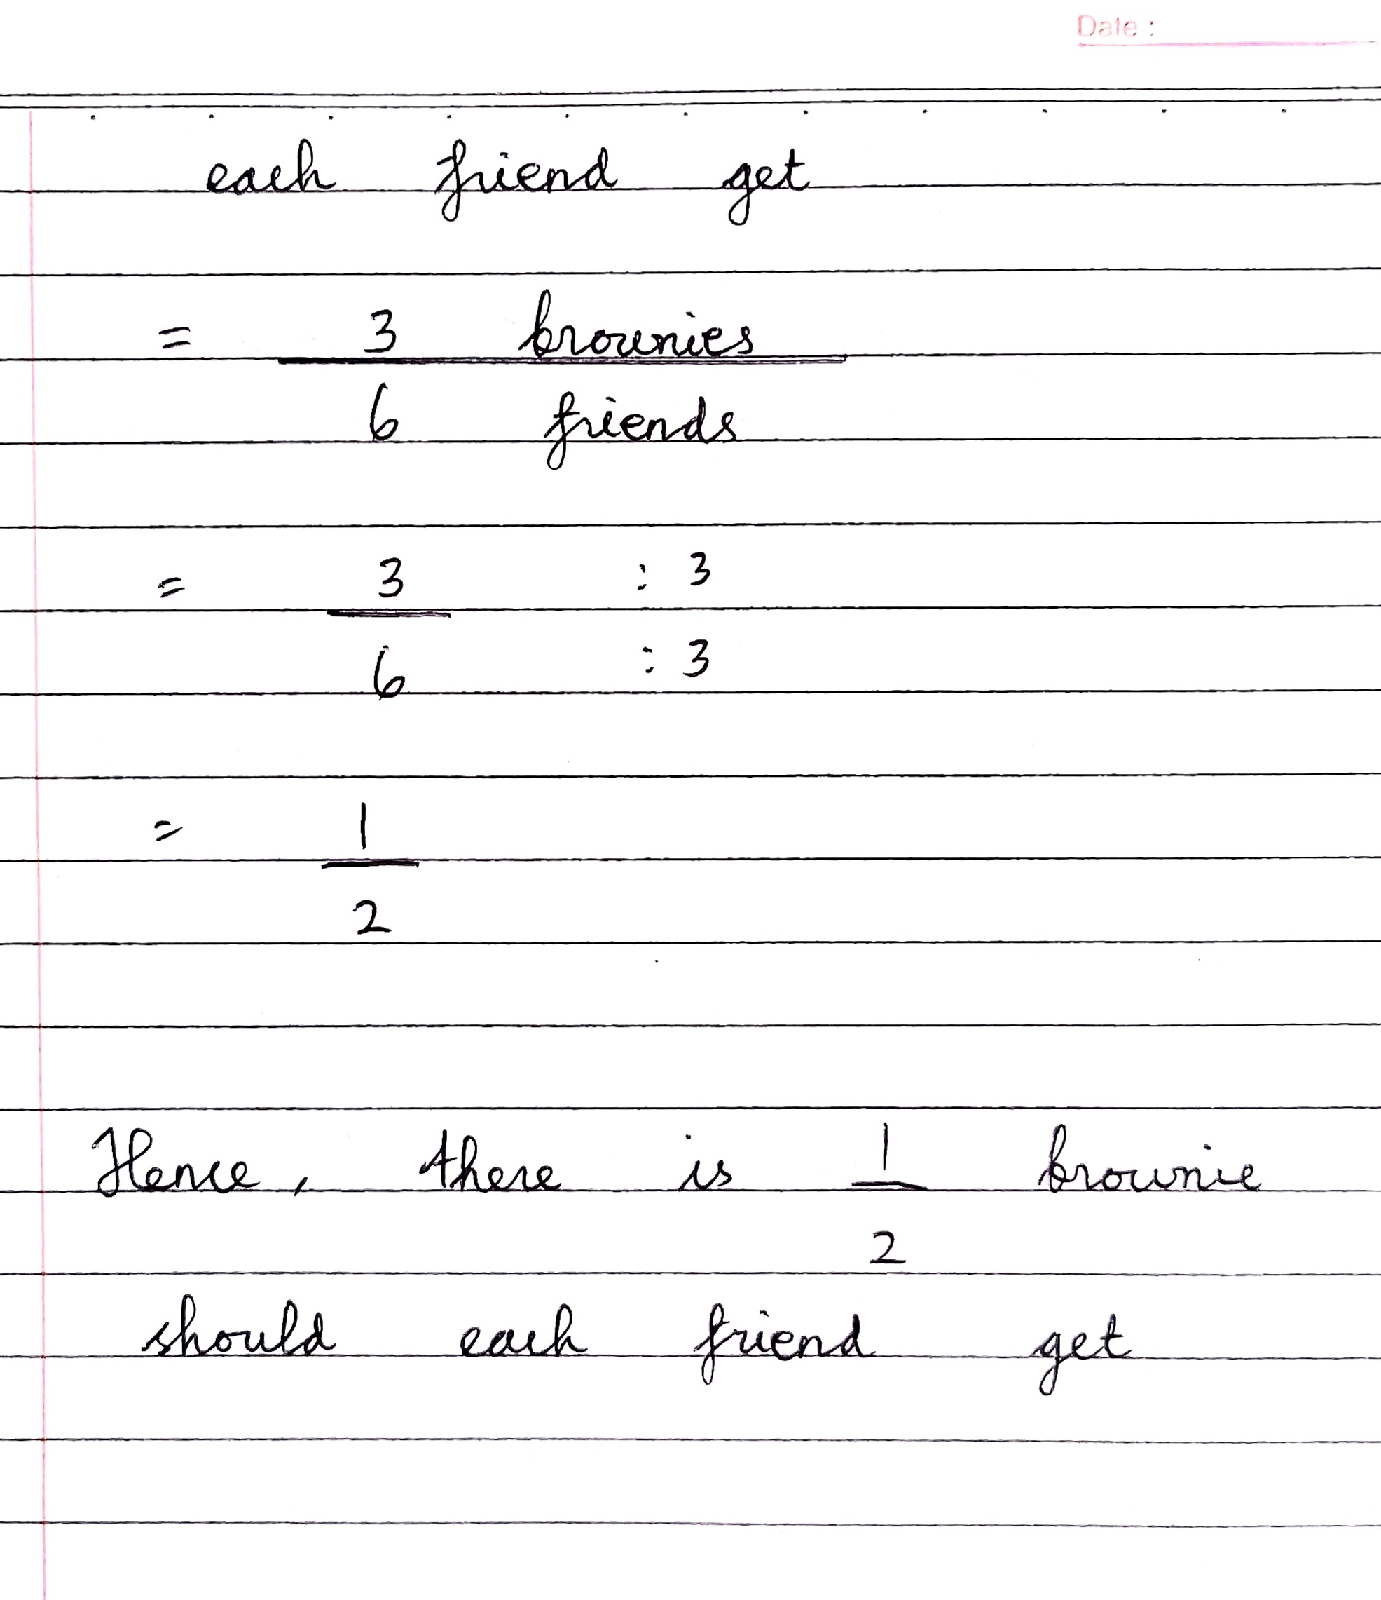 Date :
each friend get
= 3 brownies
6 friends
= 3 : 3
6 : 3
= 1
2
Hence, there is 1 brownie
2
should each friend get